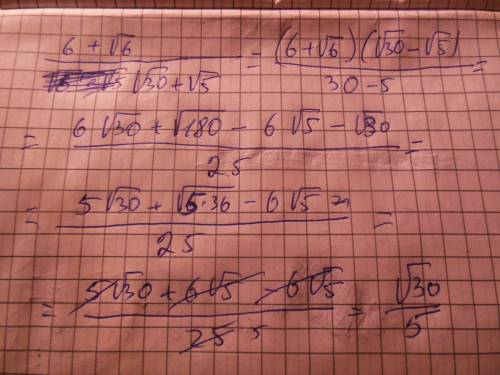 (6 + √6)/(√30 + √5) = (6+√6)(√30 − √5)/(30 − 5) =
= (6√30 + √180 − 6√5 − √30)/25 =
= (5√30 + √(5·36) − 6√5)/25 =
= (5√30 + 6√5 − 6√5)/(25 5) = √30/5